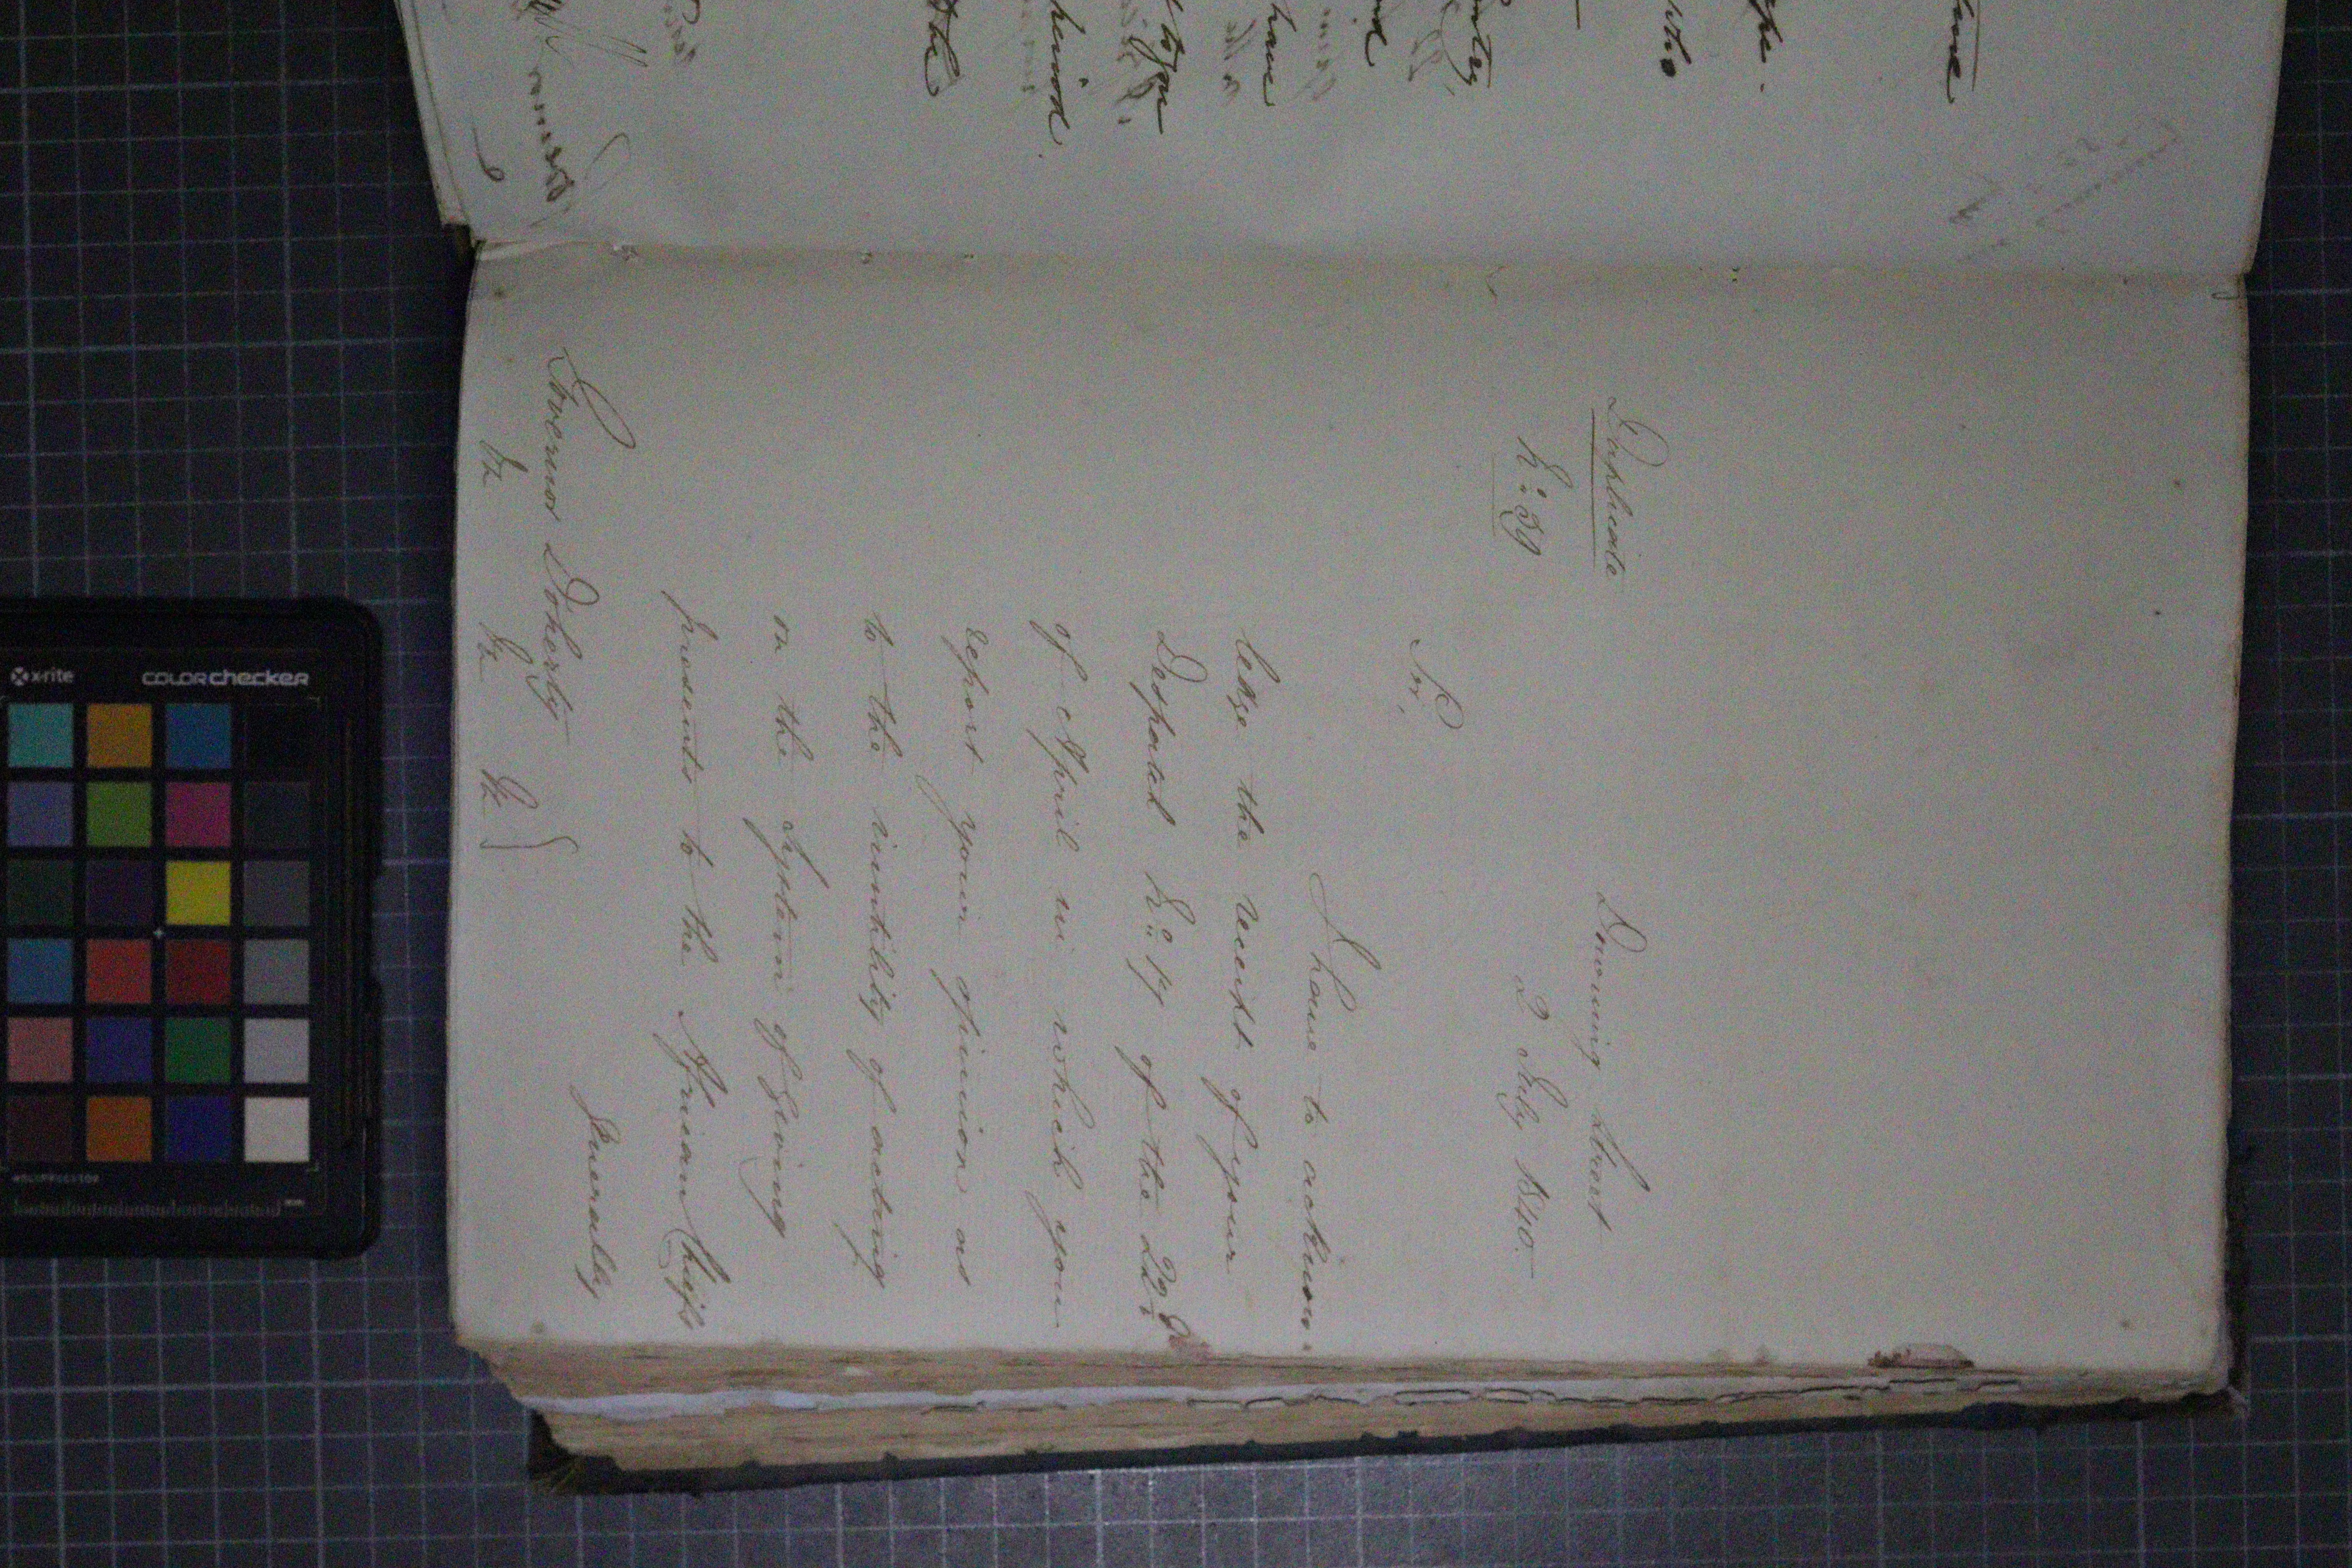 Duplicate
Downing Street
No: 39
2 July 1840.
Sir,
I have to acknow-
ledge the receipt of your
Despatch No: 17 of the 22d
of April in which you
report your opinion as
to the inutility of acting
on the system of giving
presents to the African Chiefs
generally
Governor Doherty
&c &c &c
have
who
have
to you
the
x-rite
colorchecker